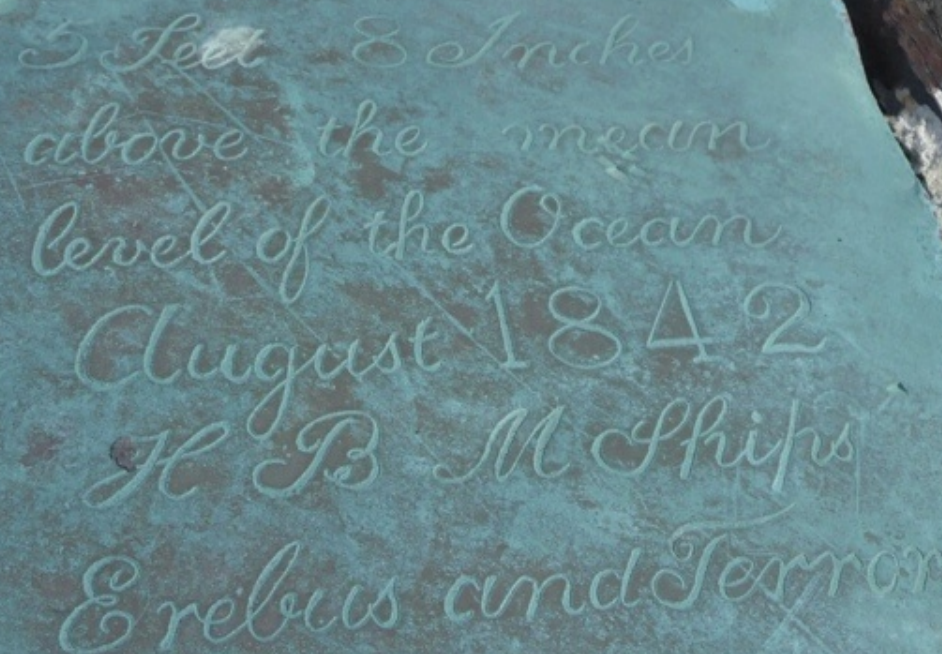 5 Feet 8 Inches
above the mean
level of the Ocean
August 1842
H B M Ships
Erebus and Terror